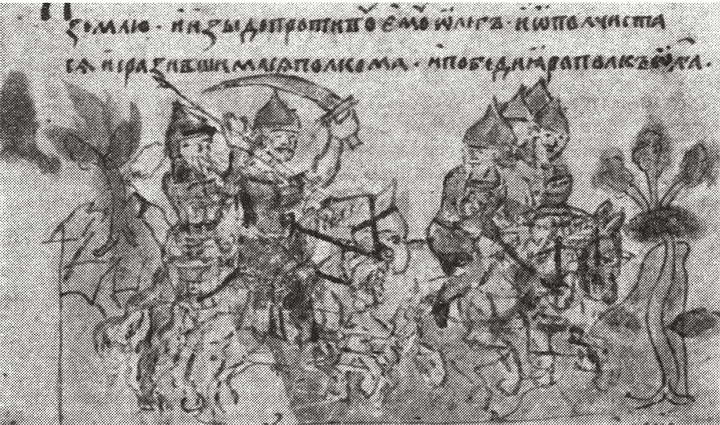 землю · и изыде противо емоу ѡлегъ · и ѡполчиста
сѧ и сразившимасѧ полкома · и победи ꙗрополкъ ѡлга ·